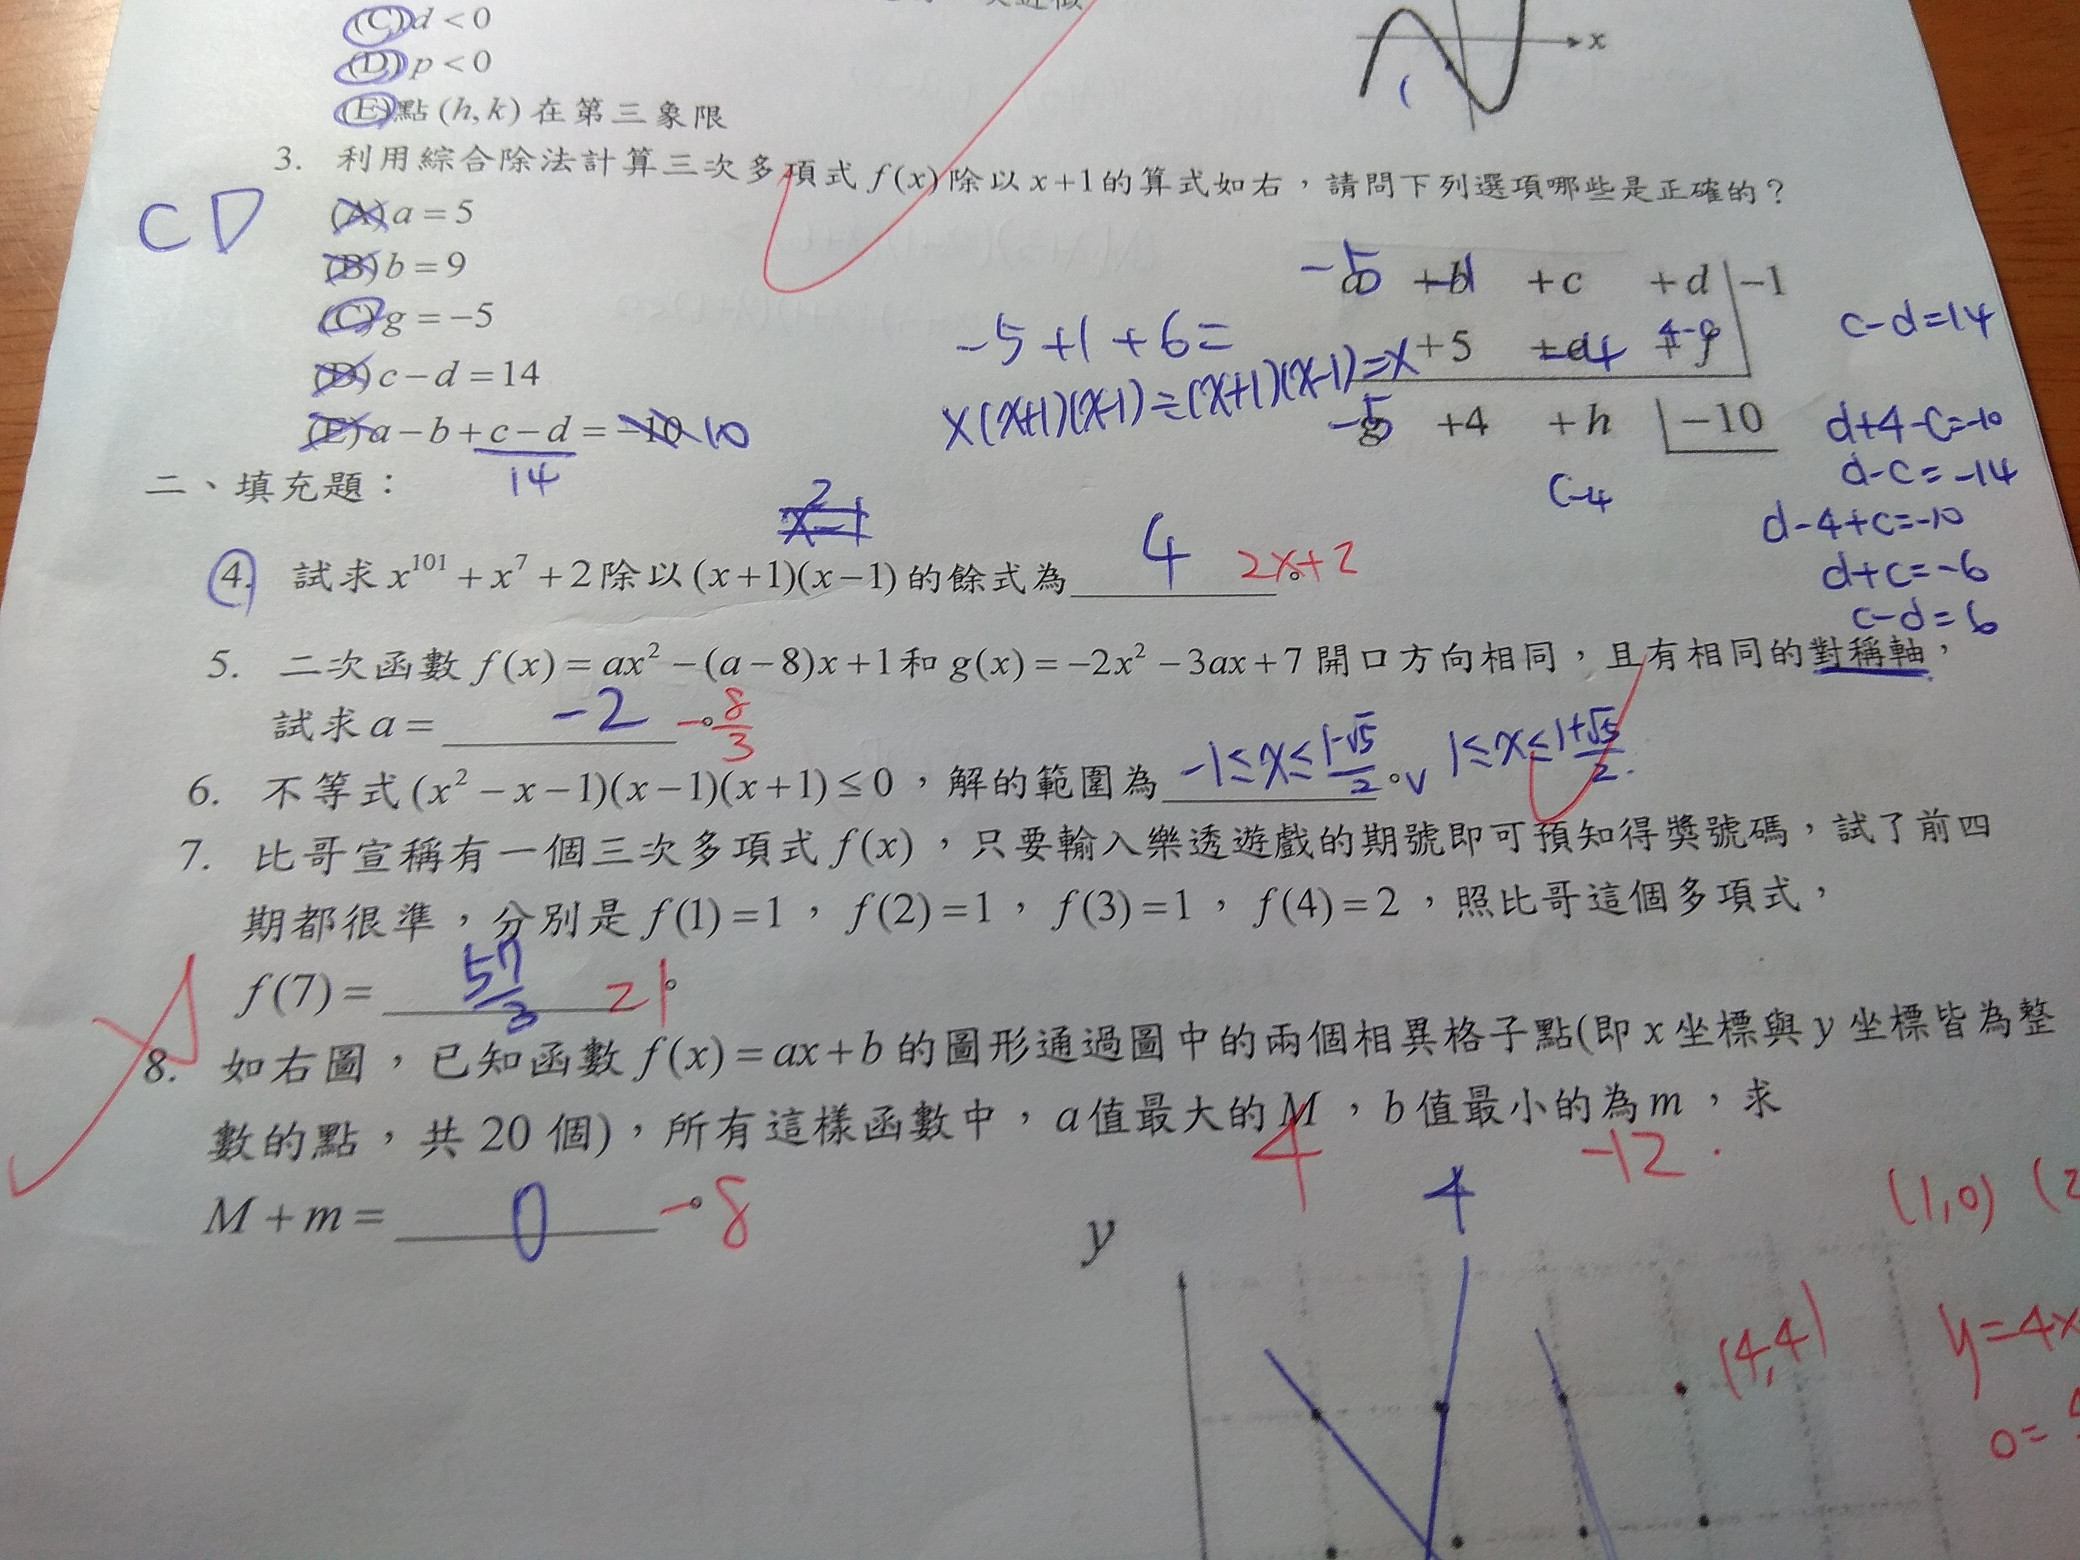 (C) d < 0
(D) p < 0
(E) 點 (h, k) 在第三象限
x
3. 利用綜合除法計算三次多項式 f(x) 除以 x+1 的算式如右，請問下列選項哪些是正確的？
CD
(A) a = 5
(B) b = 9
(C) g = −5
(D) c − d = 14
(E) a − b + c − d = −10 10
14
-5 +b +c +d | −1
+5 -4
-5 +4 +h | −10
c-4
-5+1+6=
x(x+1)(x-1)÷(x+1)(x-1)=x
c-d=14
d+4-c=-10
d-c=-14
d-4+c=-10
d+c=-6
c-d=6
二、填充題：
4. 試求 x¹⁰¹ + x⁷ + 2 除以 (x+1)(x−1) 的餘式為 4 。 2x+2
5. 二次函數 f(x) = ax² − (a − 8)x + 1 和 g(x) = −2x² − 3ax + 7 開口方向相同，且有相同的對稱軸，
試求 a = -2 。 -8/3
6. 不等式 (x² − x − 1)(x − 1)(x + 1) ≤ 0，解的範圍為 -1≤x≤(1-√5)/2 。 v 1≤x≤(1+√5)/2.
7. 比哥宣稱有一個三次多項式 f(x)，只要輸入樂透遊戲的期號即可預知得獎號碼，試了前四
期都很準，分別是 f(1) = 1，f(2) = 1，f(3) = 1，f(4) = 2，照比哥這個多項式，
f(7) = 57/3 。 21
8. 如右圖，已知函數 f(x) = ax + b 的圖形通過圖中的兩個相異格子點(即 x 坐標與 y 坐標皆為整
數的點，共 20 個)，所有這樣函數中，a 值最大的 M，b 值最小的為 m，求
4 -12
M + m = 0 。 -8
4
y
(1,0)
(4,4)
y=4x
0=